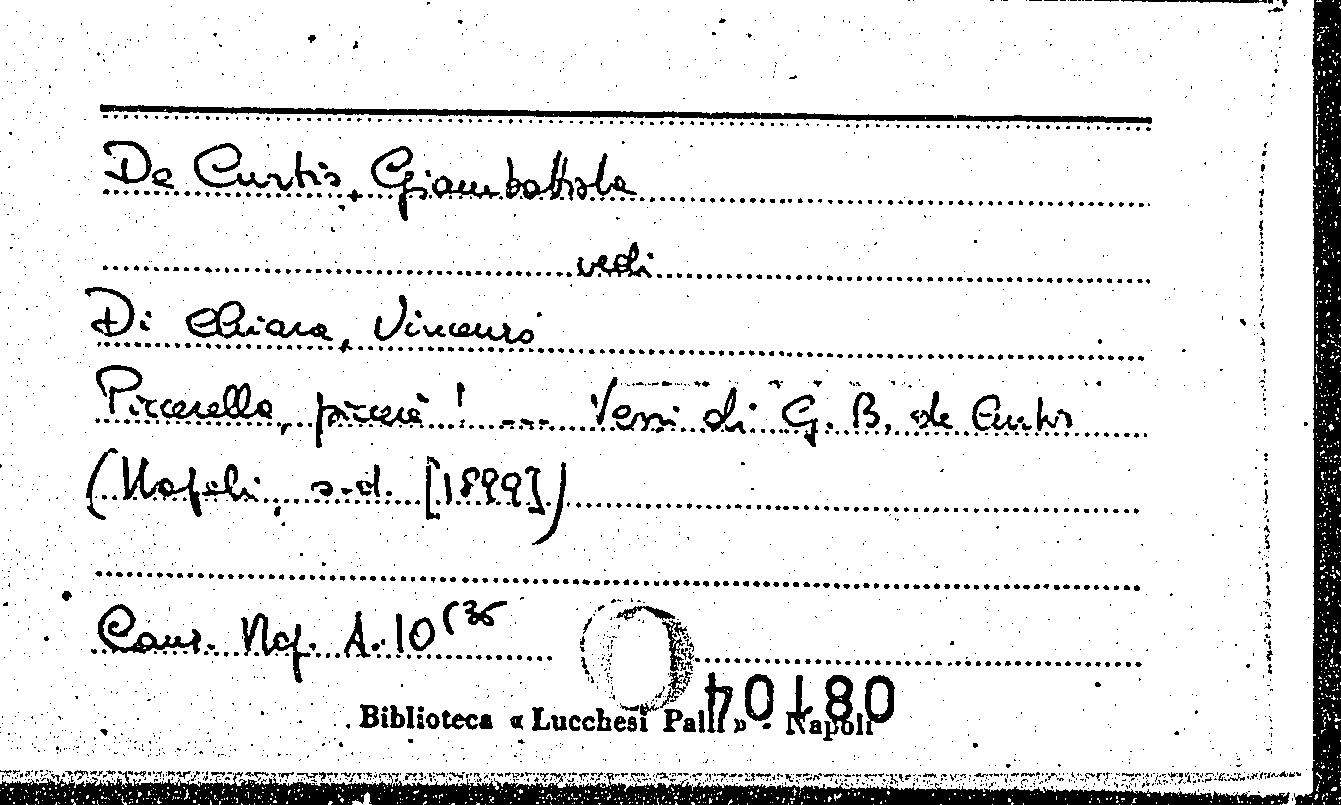 De Curtis, Giambattista
vedi
Di Chiara, Vincenzo
Piccerella, piccerè! --- Versi di G. B. de Curtis
(Napoli, s.d. [1899])
Canz. Nap. A. 10 (35
08104
Biblioteca « Lucchesi Palli » - Napoli